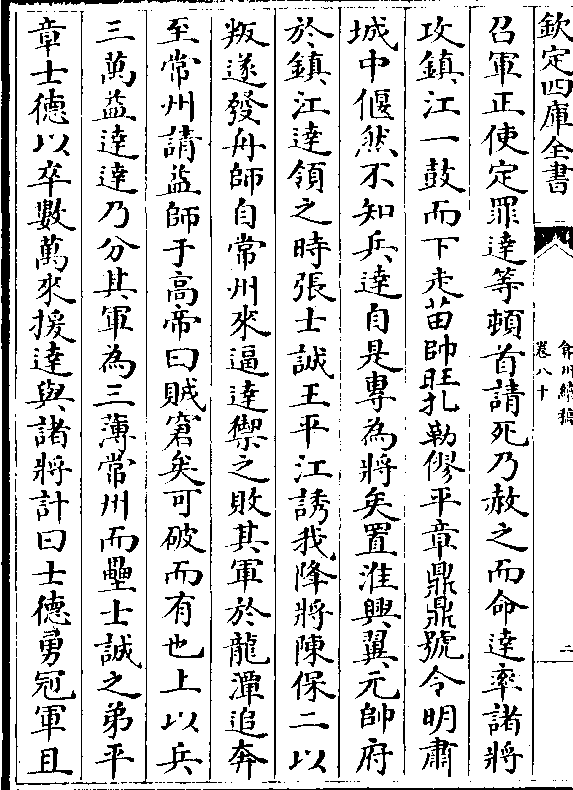 欽定四庫全書
弇州續稿
卷八十
二
召軍正使定罪達等頓首請死乃赦之而命達率諸將
攻鎮江一鼓而下走苗帥旺扎勒僇平章鼎鼎號令明肅
城中偃然不知兵達自是專為將矣置淮興翼元帥府
於鎮江達領之時張士誠王平江誘我降將陳保二以
叛遂發舟師自常州來逼達禦之敗其軍於龍潭追奔
至常州請益師于高帝曰賊窘矣可破而有也上以兵
三萬益達達乃分其軍為三薄常州而壘士誠之弟平
章士德以卒數萬來援達與諸將計曰士德勇冠軍且